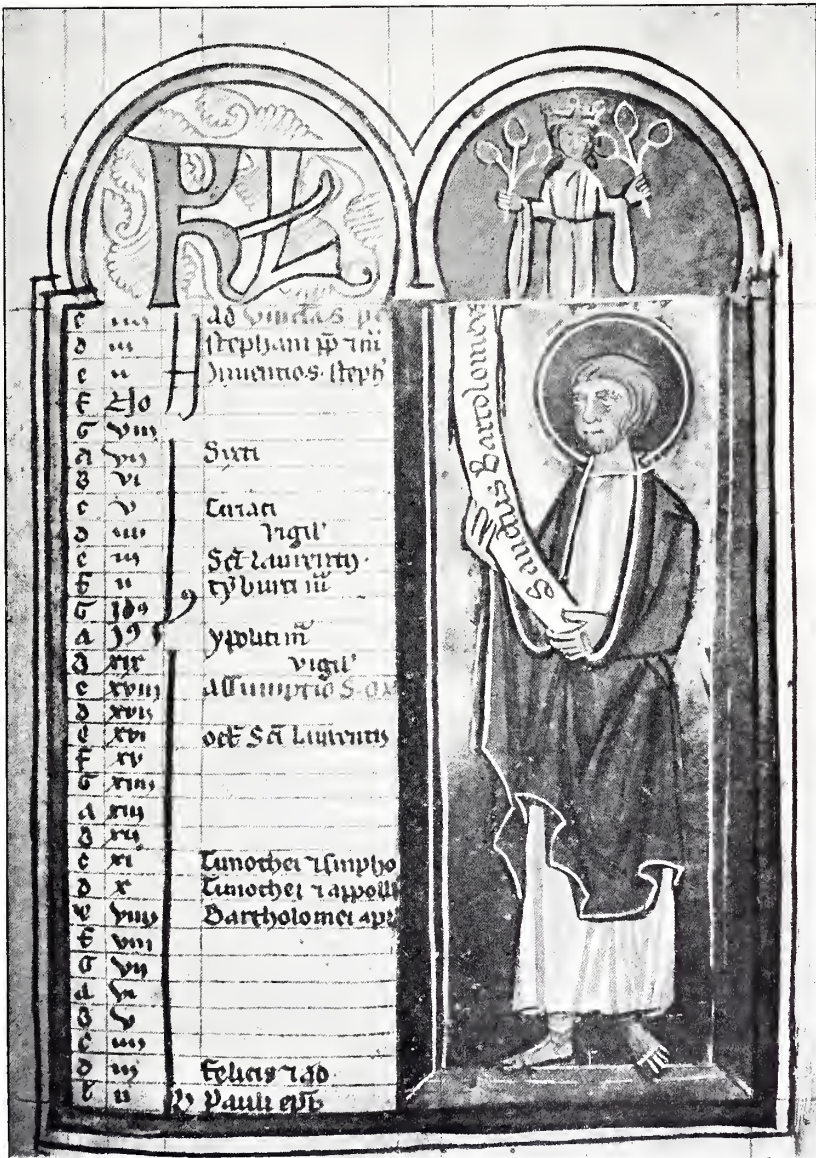 KL
c iiij ad vincla s. pe
d iii stephani pp ⁊ m̄
e ii Inuentio s. steph'
f No
G viii
a vij Sixti
B vi
c v Ciriaci
d iiii vigil'
e iii Sc̄i Laurentij.
f ii tyburti m̄
G Id9
a 19 ypoliti m̄
B xix vigil'
c xviii assumptio s.
d xvii
e xvi oct Sc̄i Laurentij
f xv
G xiiii
a xiii
B xii
c xi Timothei ⁊ simpho
d x Timothei ⁊ appolli
e viiii Bartholomei apl
f viii
G vii
a vi
B v
c iiii
d iij felicis ⁊ ad
e ii Pauli ep̄i
Sanctus Bartolomeus